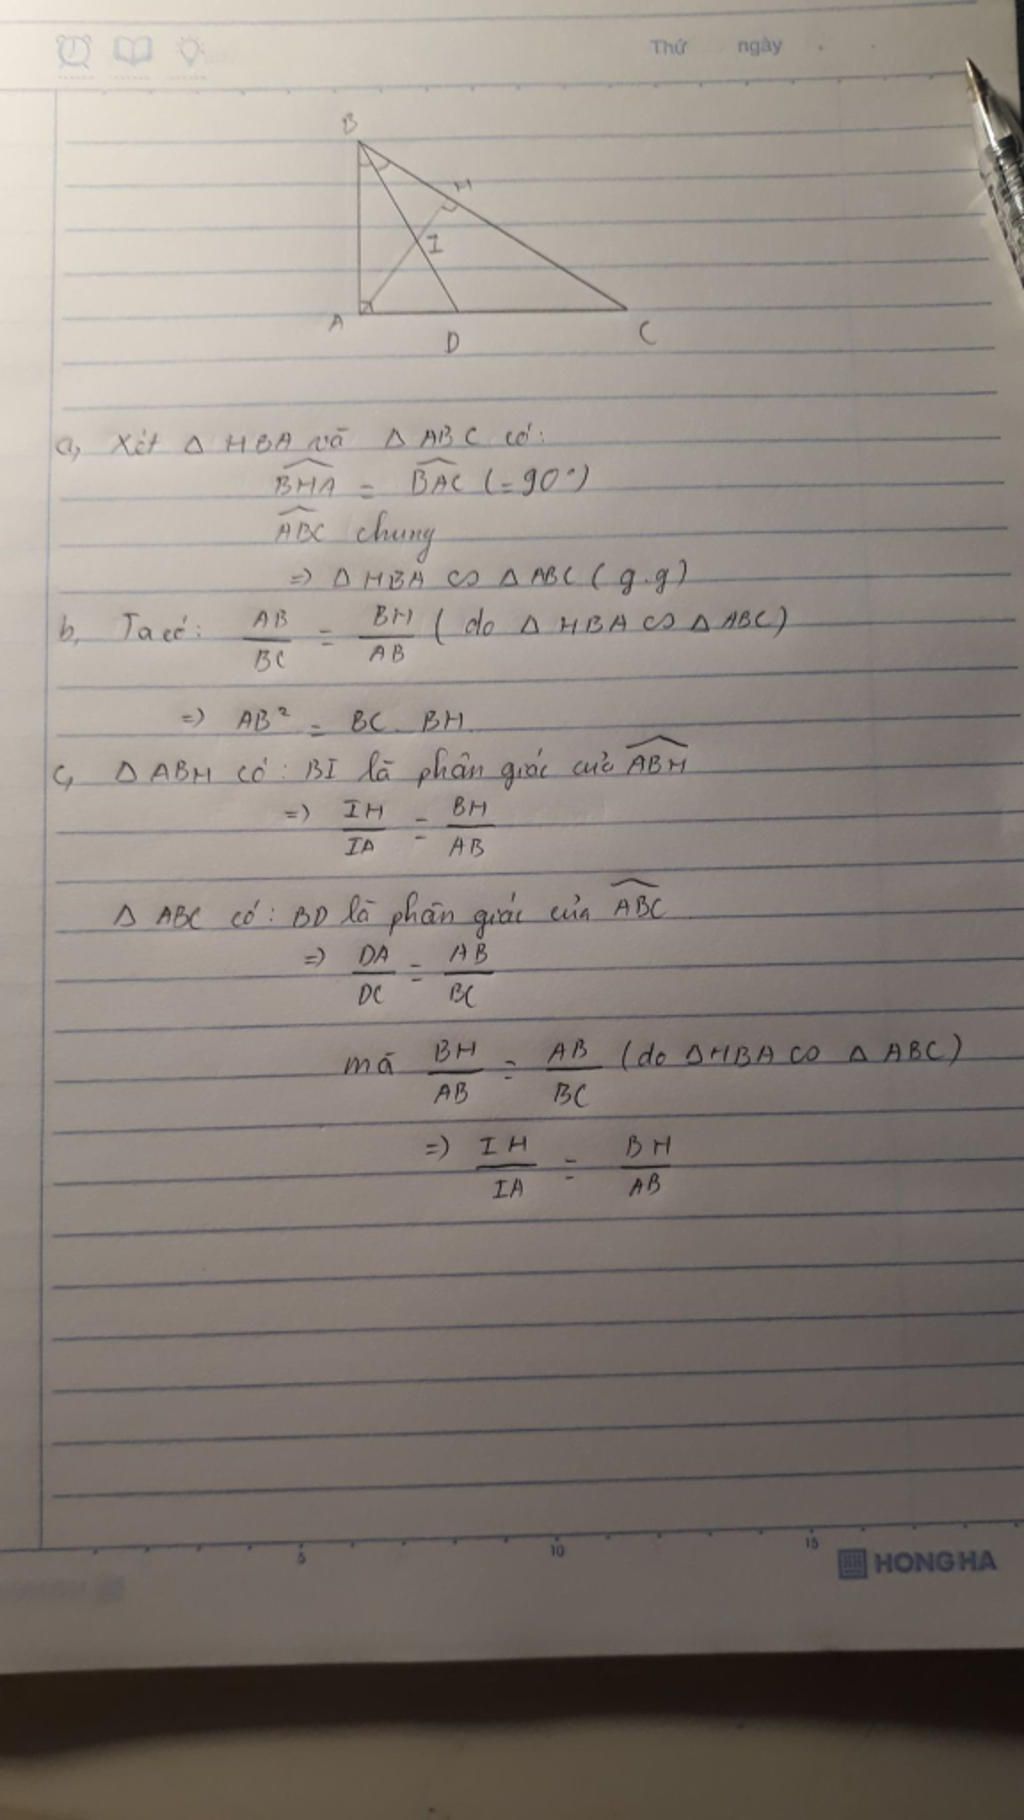 Thứ ngày
B
H
I
A
D
C
a, Xét △ HBA và △ ABC có:
$\widehat{BHA}$ = $\widehat{BAC}$ (=90°)
$\widehat{ABC}$ chung
=> △ HBA ∽ △ ABC (g.g)
b, Ta có: $\frac{AB}{BC}$ = $\frac{BH}{AB}$ ( do △ HBA ∽ △ ABC)
=> AB² = BC . BH
c, △ ABH có : BI là phân giác của $\widehat{ABH}$
=> $\frac{IH}{IA}$ = $\frac{BH}{AB}$
△ ABC có : BD là phân giác của $\widehat{ABC}$
=> $\frac{DA}{DC}$ = $\frac{AB}{BC}$
mà $\frac{BH}{AB}$ = $\frac{AB}{BC}$ (do △HBA ∽ △ ABC)
=> $\frac{IH}{IA}$ = $\frac{BH}{AB}$
5 10 15
HONG HA